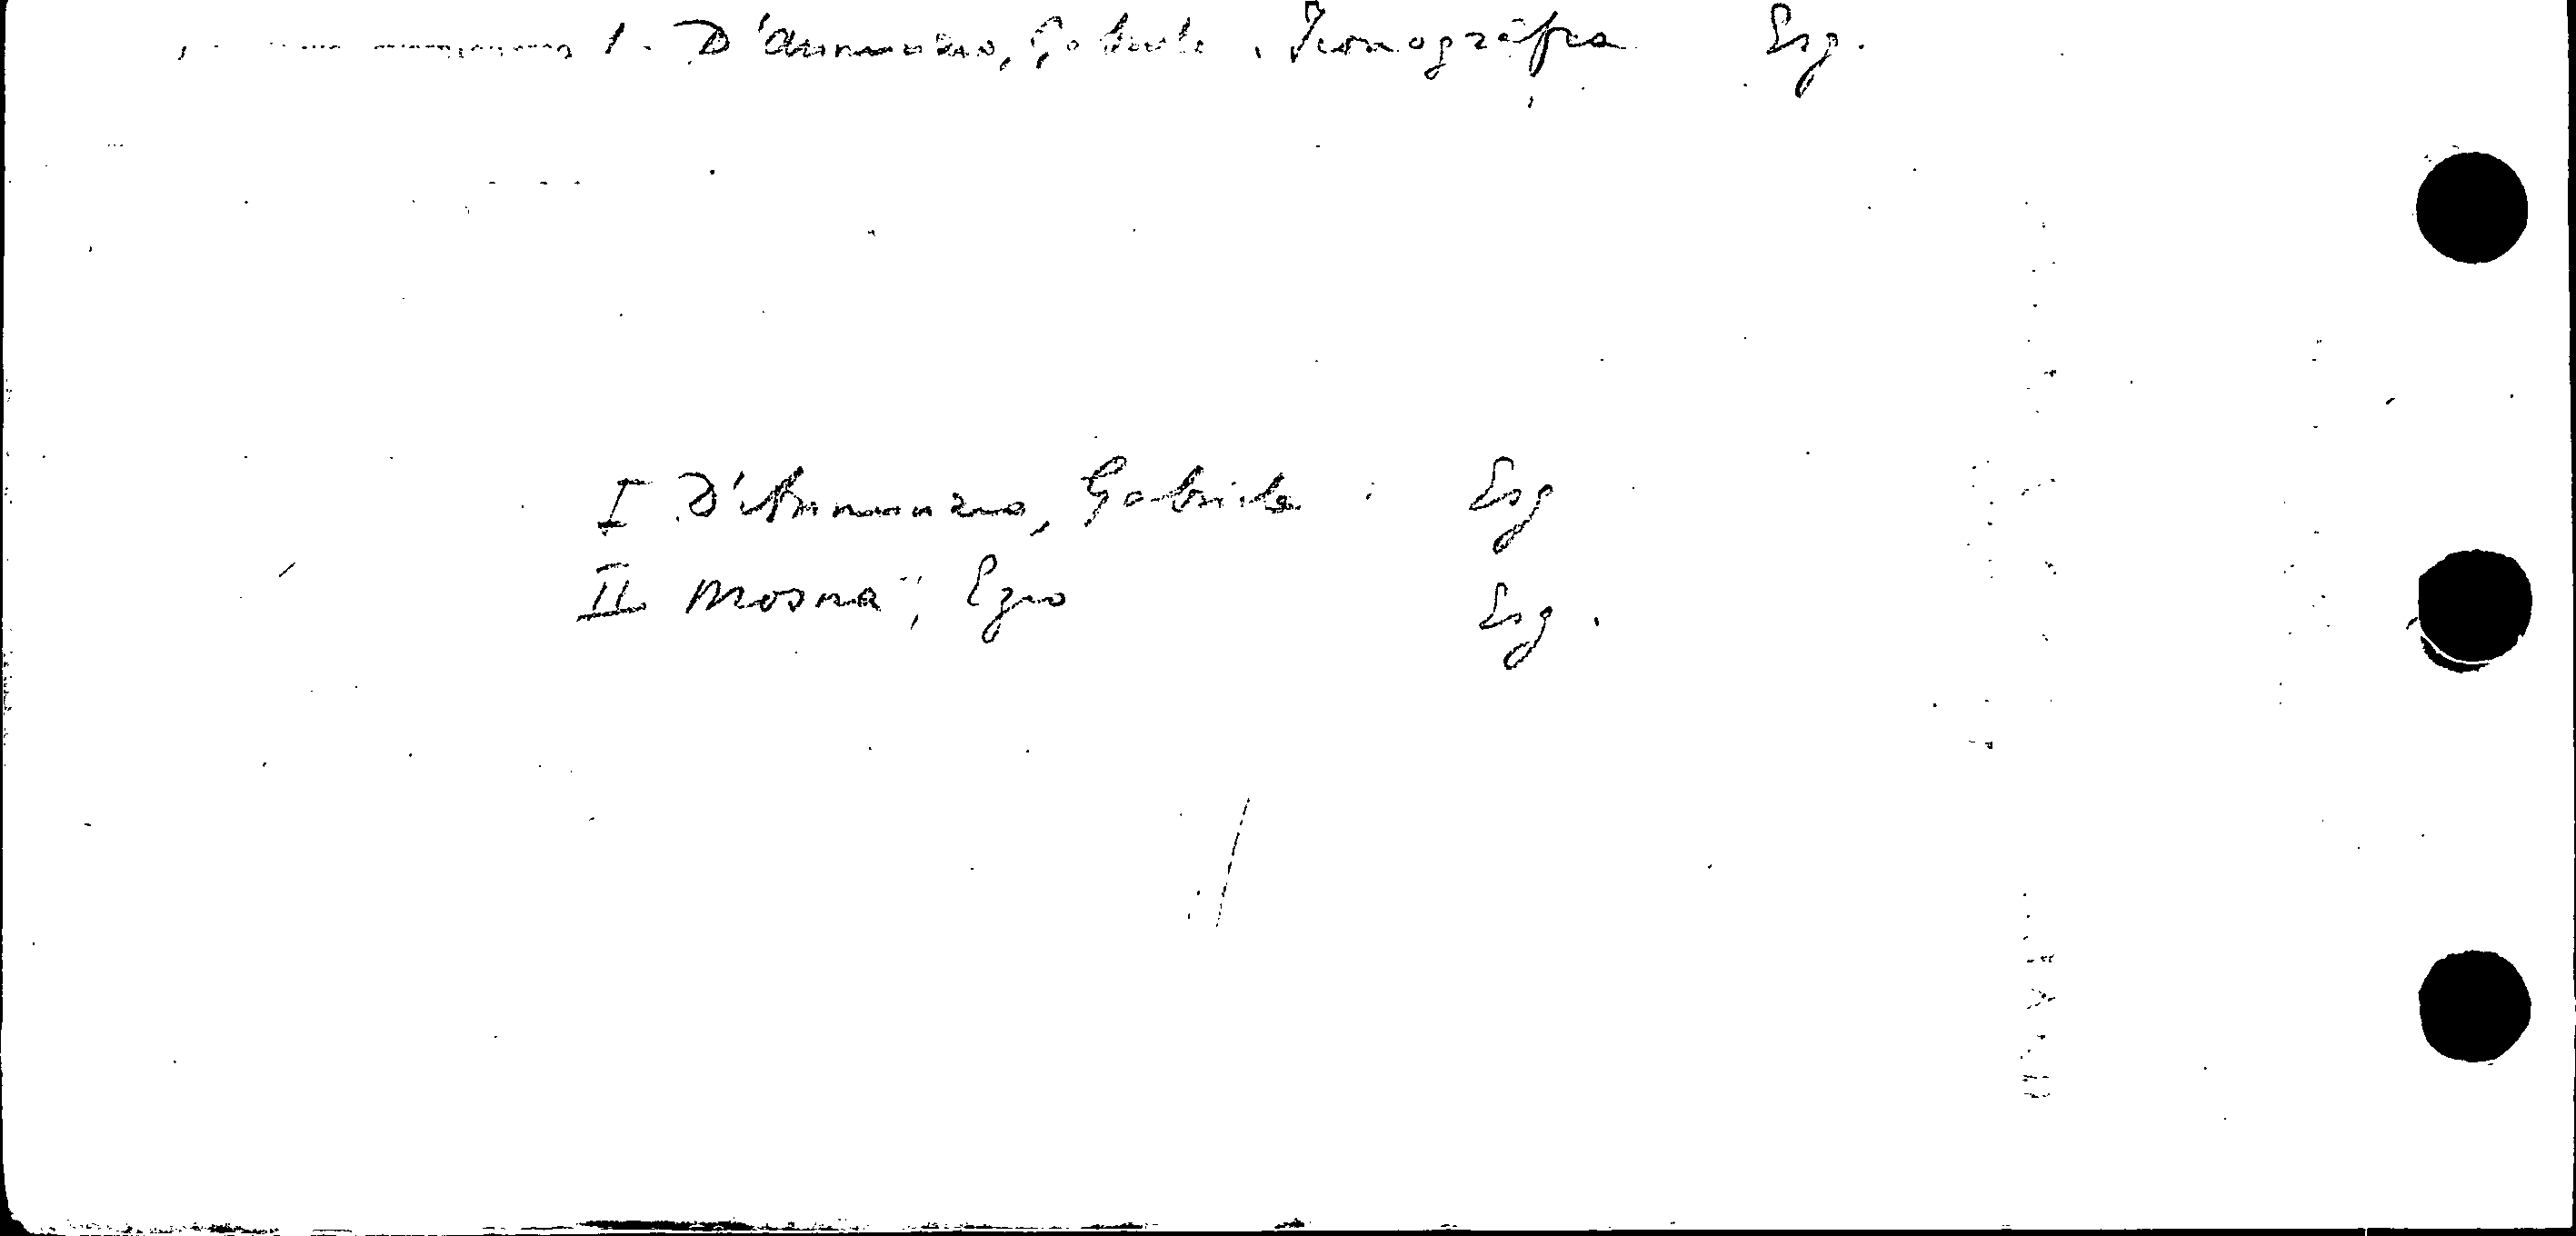 1. D'Annunzio, Gabriele. Iconografia Esg.
I D'Annunzio, Gabriele. Esg
II Mosna, Ezio Esg.